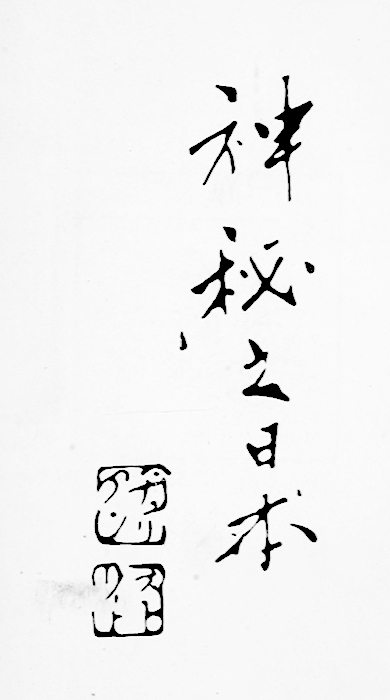 神秘之日本